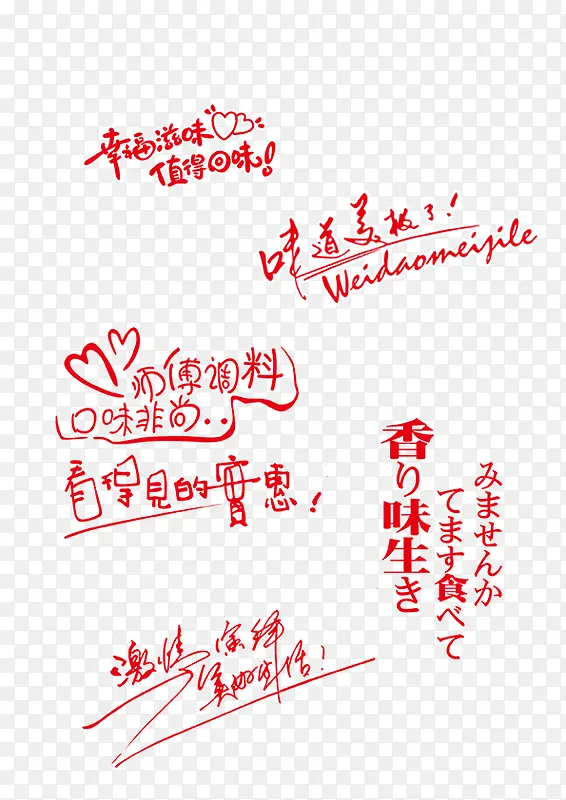 幸福滋味
值得回味!
味道美极了!
Weidaomeijile
师傅调料
口味非尚..
看得見的實惠!
香り味生き
みませんか
てます食べて
激情演绎
美好生活!